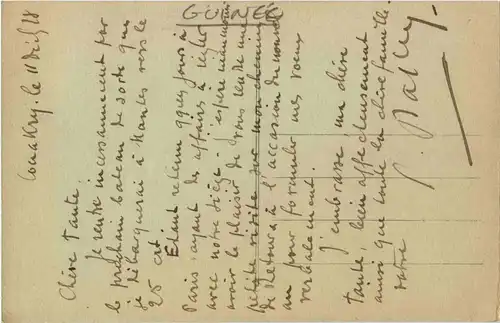 GUINEE
Conakry. le 11 Déc. 28
Chère Tante
Je rentre incessamment par
le prochain bateau de sorte que
je débarquerai à Nantes vers le
25 ct.
Etant retenu qques jours à
Paris ayant des affaires à régler
avec notre siège. J'espère néanmoins
avoir le plaisir de vous rendre une
petite visite sur mon chemin
de retour à l'occasion du nouvel
an pour formuler mes voeux
verbalement.
J'embrasse ma chère
tante, bien affectueusement
ainsi que toute la chère famille.
votre